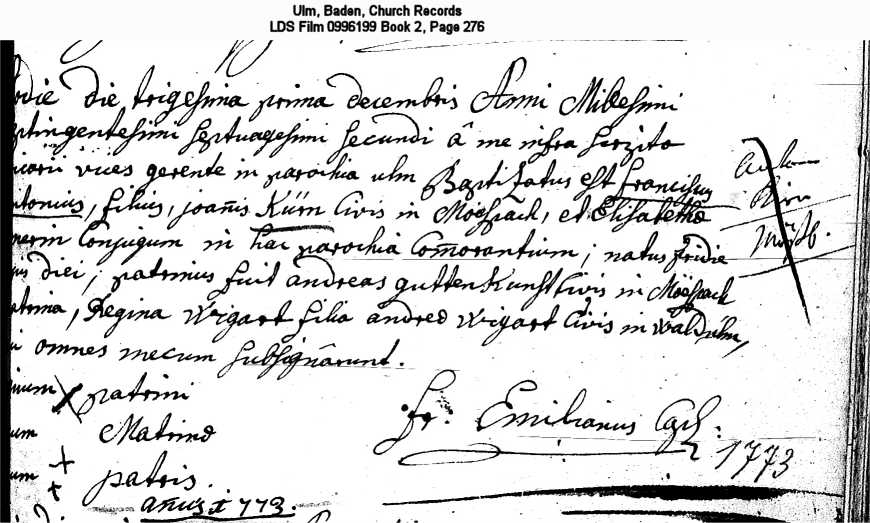 Ulm, Baden, Church Records
LDS Film 0996199 Book 2, Page 276
odie die trigesima prima decembris Anni Millesimi
ptingentesimi septuagesimi secundi â me infra scripto
carii vices gerente in parochia ulm Baptizatus est franciscus
ntonius, filius, joañis Kürn Civis in Mösbach, et Elisabetha
Conjugum in hac parochia Com̃orantium; natus pridie
us diei; patrinus fuit andreas guttenKunst Civis in Mösbach
atrina, Regina wigart filia andreæ wigart Civis in waldulm,
i omnes mecum subsignarunt.
num X patrini
um Matrinæ
um + patris.
+
fr. Emilianus Cap.
1773
añus 1773.